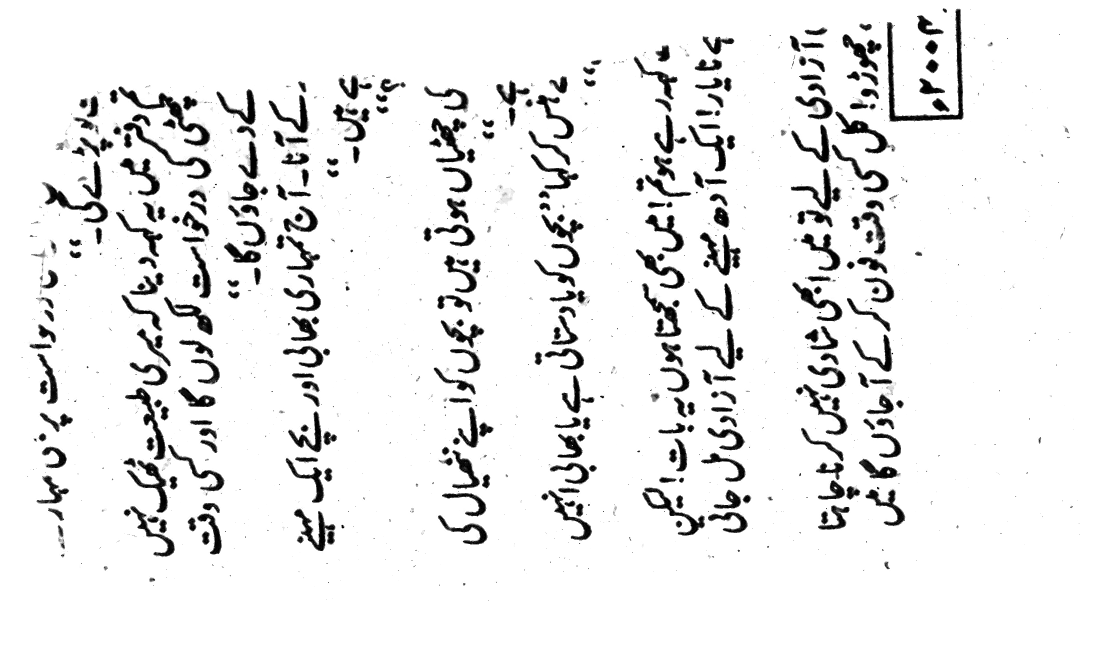 درخواست پر
ت تو پڑے گی۔“
دفتر میں یہ کہہ دینا کہ میری طبیعت ٹھیک نہیں
چھٹی کی درخواست لکھ لوں گا اور کسی وقت
کے دے جاؤں گا۔“
کے آنا۔ آج تمہاری بھابی اور بچے ایک مہینے
ہے ہیں۔“
؟“
کی چھٹیاں ہوتی ہیں تو بچوں کو اپنے ننھیال کی
ہے۔“
نے ہنس کر کہا ”بچوں کو یاد ستاتی ہے یا بھابی انہیں
“
کہہ رہے ہو تم! میں بھی سمجھتا ہوں یہ بات! لیکن
ہے نا یار! ایک آدھ مہینے کے لیے آزادی مل جاتی
آزادی کے لیے تو میں ابھی شادی نہیں کرنا چاہتا
، چھوڑو! کل کسی وقت فون کر کے آ جاؤں گا میں
۲۰۰۳ء